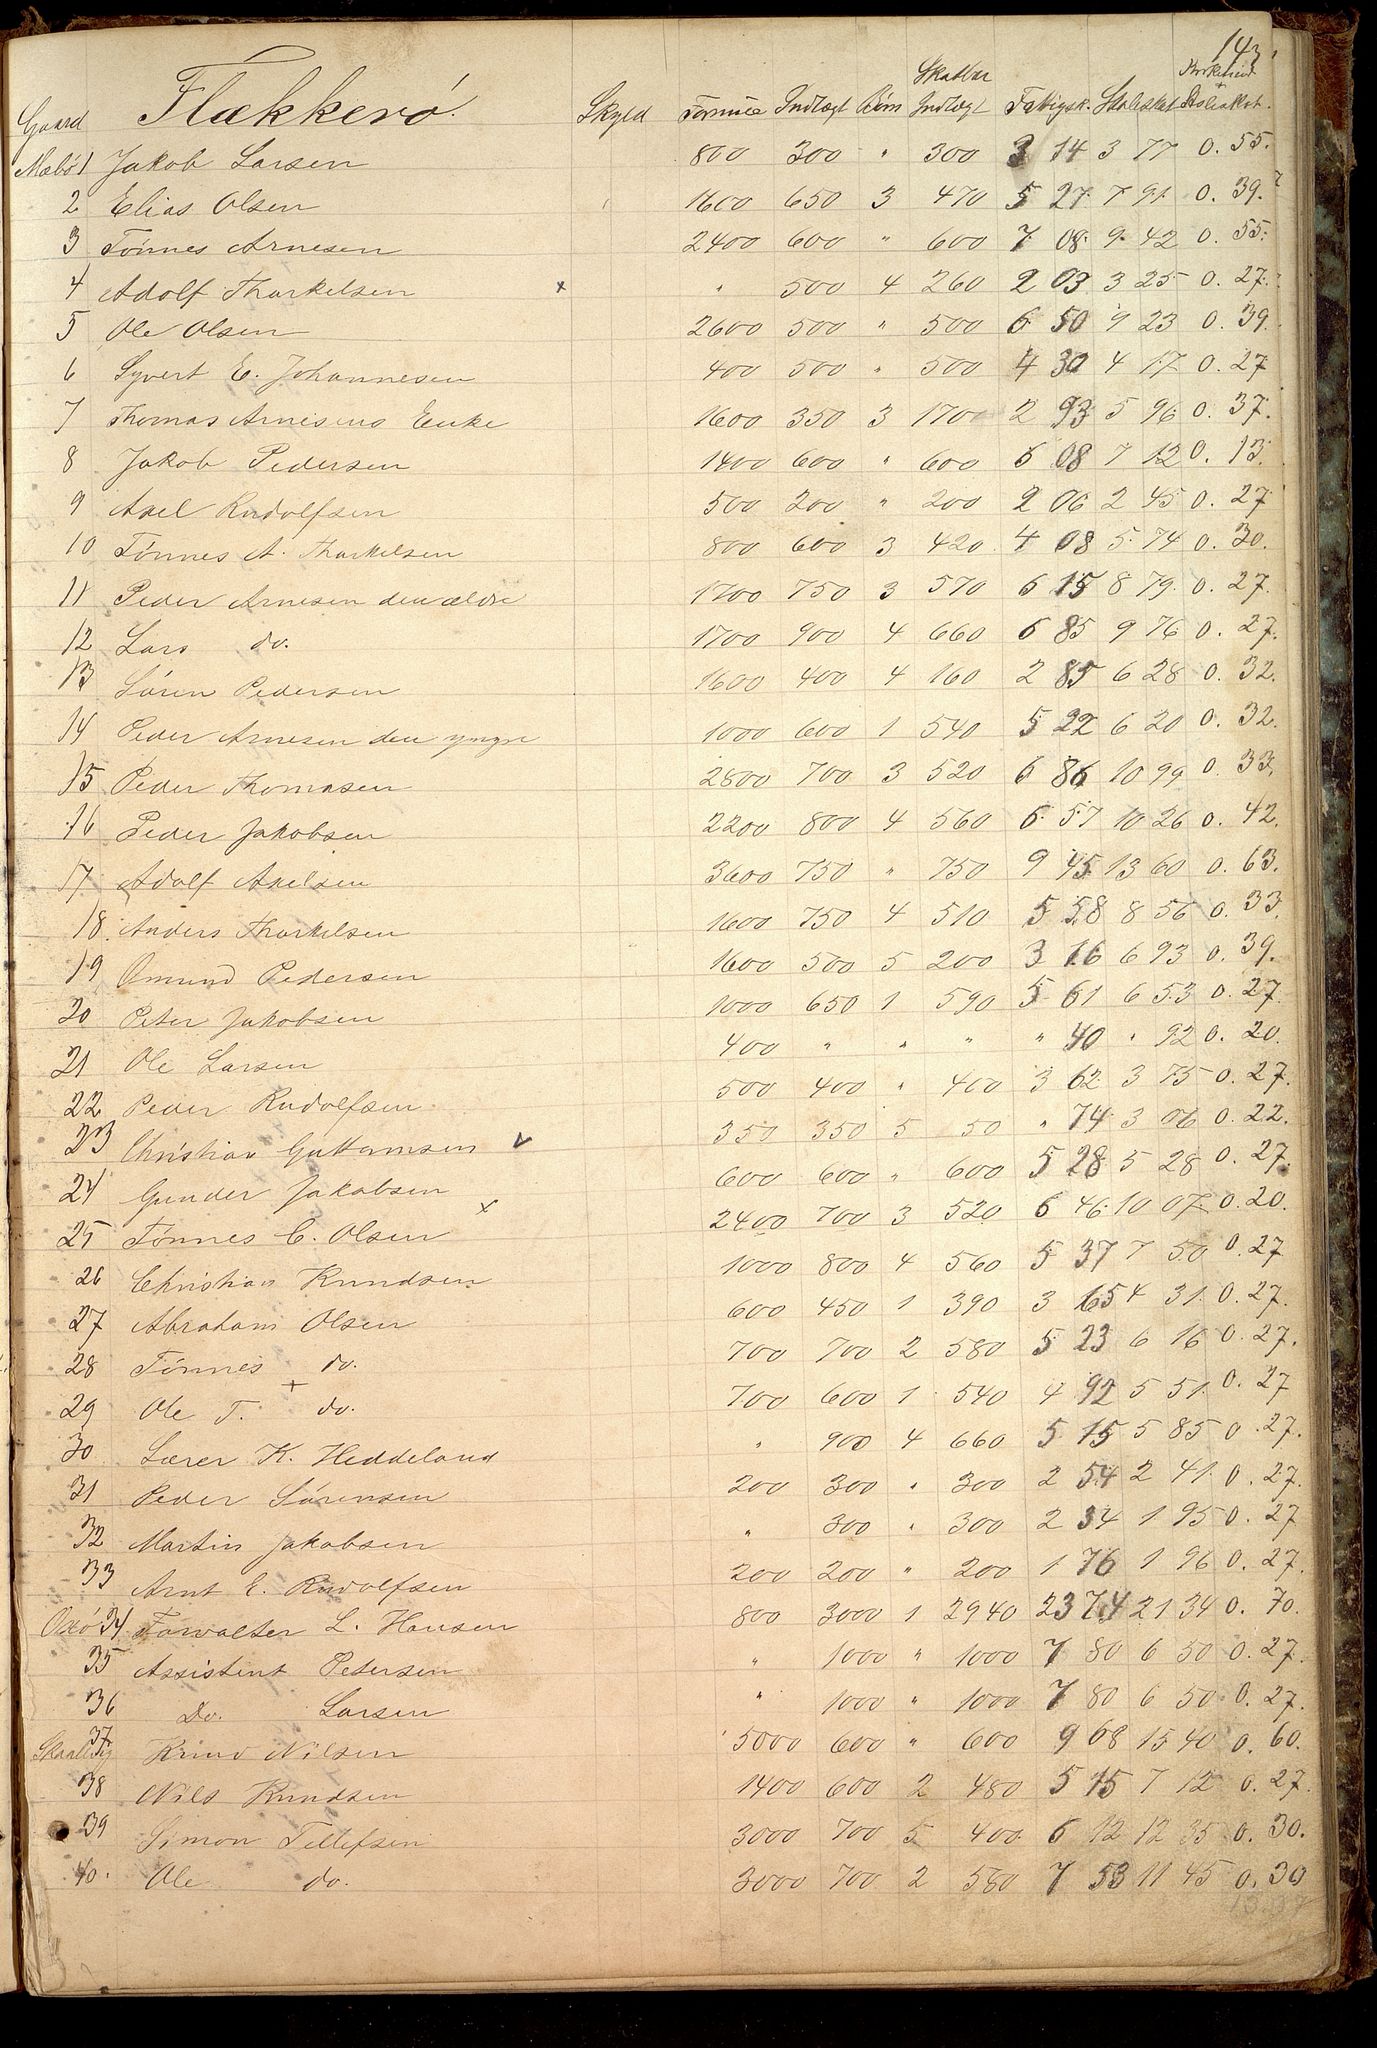 143.
Gaard Flækkerö. Skyld Formue Indtægt Börn Skatbar Indtægt Fatigsk. Skoleskat Skoleskat.
Mæbö 1 Jakob Larsen 800 300 " 300 3 14 3 77 0. 55.
2 Elias Olsen 1600 650 3 470 5 27 7 91 0. 39.
3 Tönnes Arnesen 2400 600 " 600 7 08 9 42 0. 55.
4 Adolf Tharkelsen x " 500 4 260 2 03 3 25 0. 27.
5 Ole Olsen 2600 500 " 500 6 50 9 23 0. 39.
6 Syvert E. Johannesen 400 500 " 500 4 30 4 17 0. 27
7 Thomas Arnesens Enke 1600 350 3 170 2 93 5 96 0. 37.
8 Jakob Pedersen 1400 600 " 600 6 08 7 12 0. 13.
9 Axel Rudolfsen 500 200 " 200 2 06 2 45 0. 27
10 Tönnes A. Tharkelsen 800 600 3 420 4 08 5 74 0. 30.
11 Peder Arnesen den ældre 1700 750 3 570 6 15 8 79 0. 27.
12 Lars do. 1700 900 4 660 6 85 9 76 0. 27.
13 Sören Pedersen 1600 400 4 160 2 85 6 28 0. 32.
14 Peder Arnesen den yngre 1000 600 1 540 5 22 6 20 0. 32.
15 Peder Thomasen 2800 700 3 520 6 86 10 99 0. 33.
16 Peder Jakobsen 2200 800 4 560 6 57 10 26 0. 42.
17 Adolf Axelsen 3600 750 " 750 9 45 13 60 0. 63.
18. Anders Tharkelsen 1600 750 4 510 5 58 8 56 0. 33.
19 Omund Pedersen 1600 500 5 200 3 16 6 93 0. 39.
20 Peter Jakobsen 1000 650 1 590 5 61 6 53 0. 27.
21 Ole Larsen 400 " " " " 40 " 92 0. 20.
22 Peder Rudolfsen 500 400 " 400 3 62 3 75 0. 27.
23 Christian Guttormsen v 350 350 5 50 " 74 3 06 0. 22.
24 Gunder Jakobsen 600 600 " 600 5 28 5 28 0. 27.
25 Tönnes C. Olsen x 2400 700 3 520 6 46 10 07 0. 20.
26 Christian Knudsen 1000 800 4 560 5 37 7 50 0. 27
27 Abraham Olsen 600 450 1 390 3 65 4 31 0. 27.
28 Tönnes do. 700 700 2 580 5 23 6 16 0. 27.
29 Ole T. + do. 700 600 1 540 4 92 5 51 0. 27
30 Lærer K. Heddeland " 900 4 660 5 15 5 85 0. 27.
31 Peder Sörensen 200 300 " 300 2 54 2 41 0. 27.
32 Martin Jakobsen " 300 " 300 2 34 1 95 0. 27
33 Arnt E. Rudolfsen 200 200 " 200 1 76 1 96 0. 27.
Oxö 34 Forvalter L. Hansen 800 3000 1 2940 23 74 21 34 0. 70.
35 Assistent Petersen " 1000 " 1000 7 80 6 50 0. 27.
36 Do. Larsen " 1000 " 1000 7 80 6 50 0. 27.
37 Knud Nilsen 5000 600 " 600 9 68 15 40 0. 60.
38 Nils Knudsen 1400 600 2 480 5 15 7 12 0. 27.
39 Simon Tellefsen 3000 700 5 400 6 12 12 35 0. 30.
40. Ole do. 3000 700 2 580 7 53 11 45 0. 30